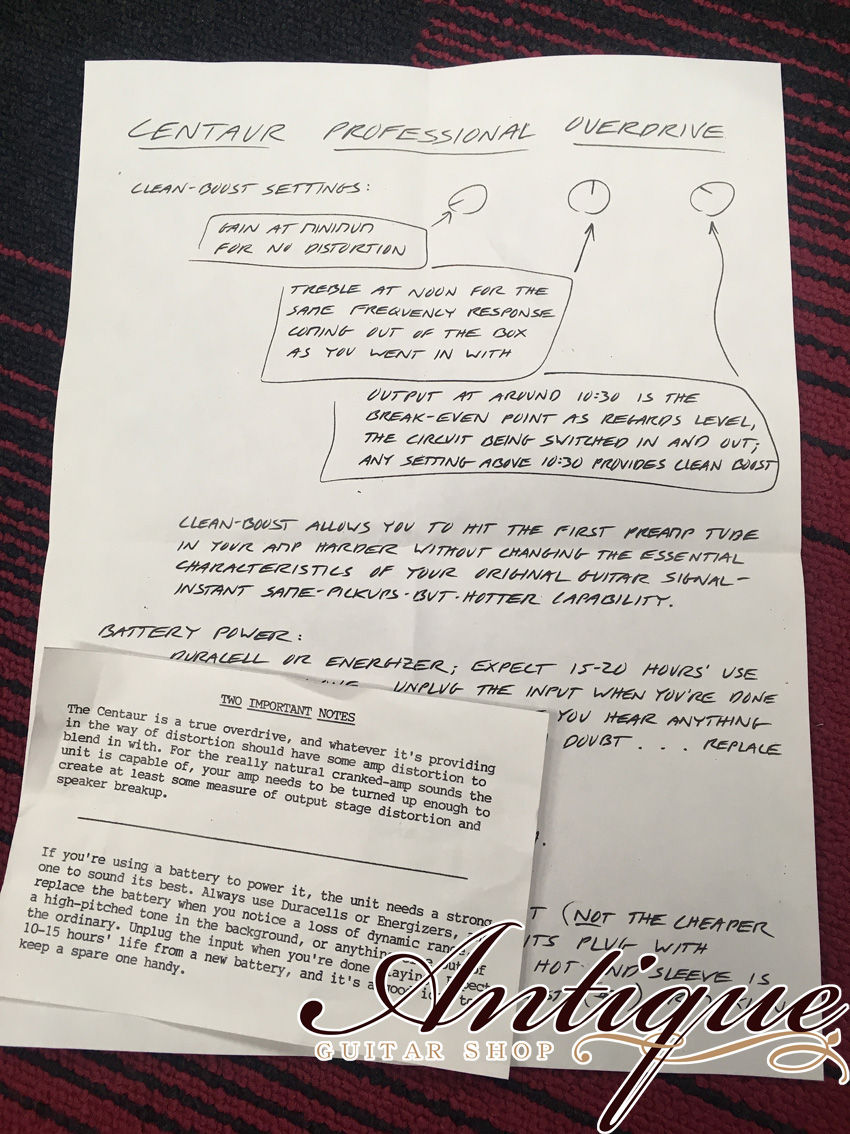 CENTAUR PROFESSIONAL OVERDRIVE
CLEAN-BOOST SETTINGS:
GAIN AT MINIMUM
FOR NO DISTORTION
TREBLE AT NOON FOR THE
SAME FREQUENCY RESPONSE
COMING OUT OF THE BOX
AS YOU WENT IN WITH
OUTPUT AT AROUND 10:30 IS THE
BREAK-EVEN POINT AS REGARDS LEVEL,
THE CIRCUIT BEING SWITCHED IN AND OUT;
ANY SETTING ABOVE 10:30 PROVIDES CLEAN BOOST
CLEAN-BOOST ALLOWS YOU TO HIT THE FIRST PREAMP TUBE
IN YOUR AMP HARDER WITHOUT CHANGING THE ESSENTIAL
CHARACTERISTICS OF YOUR ORIGINAL GUITAR SIGNAL-
INSTANT SAME-PICKUPS-BUT-HOTTER CAPABILITY.
BATTERY POWER:
DURACELL OR ENERGIZER; EXPECT 15-20 HOURS' USE
UNPLUG THE INPUT WHEN YOU'RE DONE
YOU HEAR ANYTHING
DOUBT . . . REPLACE
TWO IMPORTANT NOTES
The Centaur is a true overdrive, and whatever it's providing
in the way of distortion should have some amp distortion to
blend in with. For the really natural cranked-amp sounds the
unit is capable of, your amp needs to be turned up enough to
create at least some measure of output stage distortion and
speaker breakup.
If you're using a battery to power it, the unit needs a strong
one to sound its best. Always use Duracells or Energizers,
replace the battery when you notice a loss of dynamic range,
a high-pitched tone in the background, or anything out of
the ordinary. Unplug the input when you're done
10-15 hours' life from a new battery, and it's a
keep a spare one handy.
(NOT THE CHEAPER
PLUG WITH
HOT AND SLEEVE IS
Antique
GUITAR SHOP